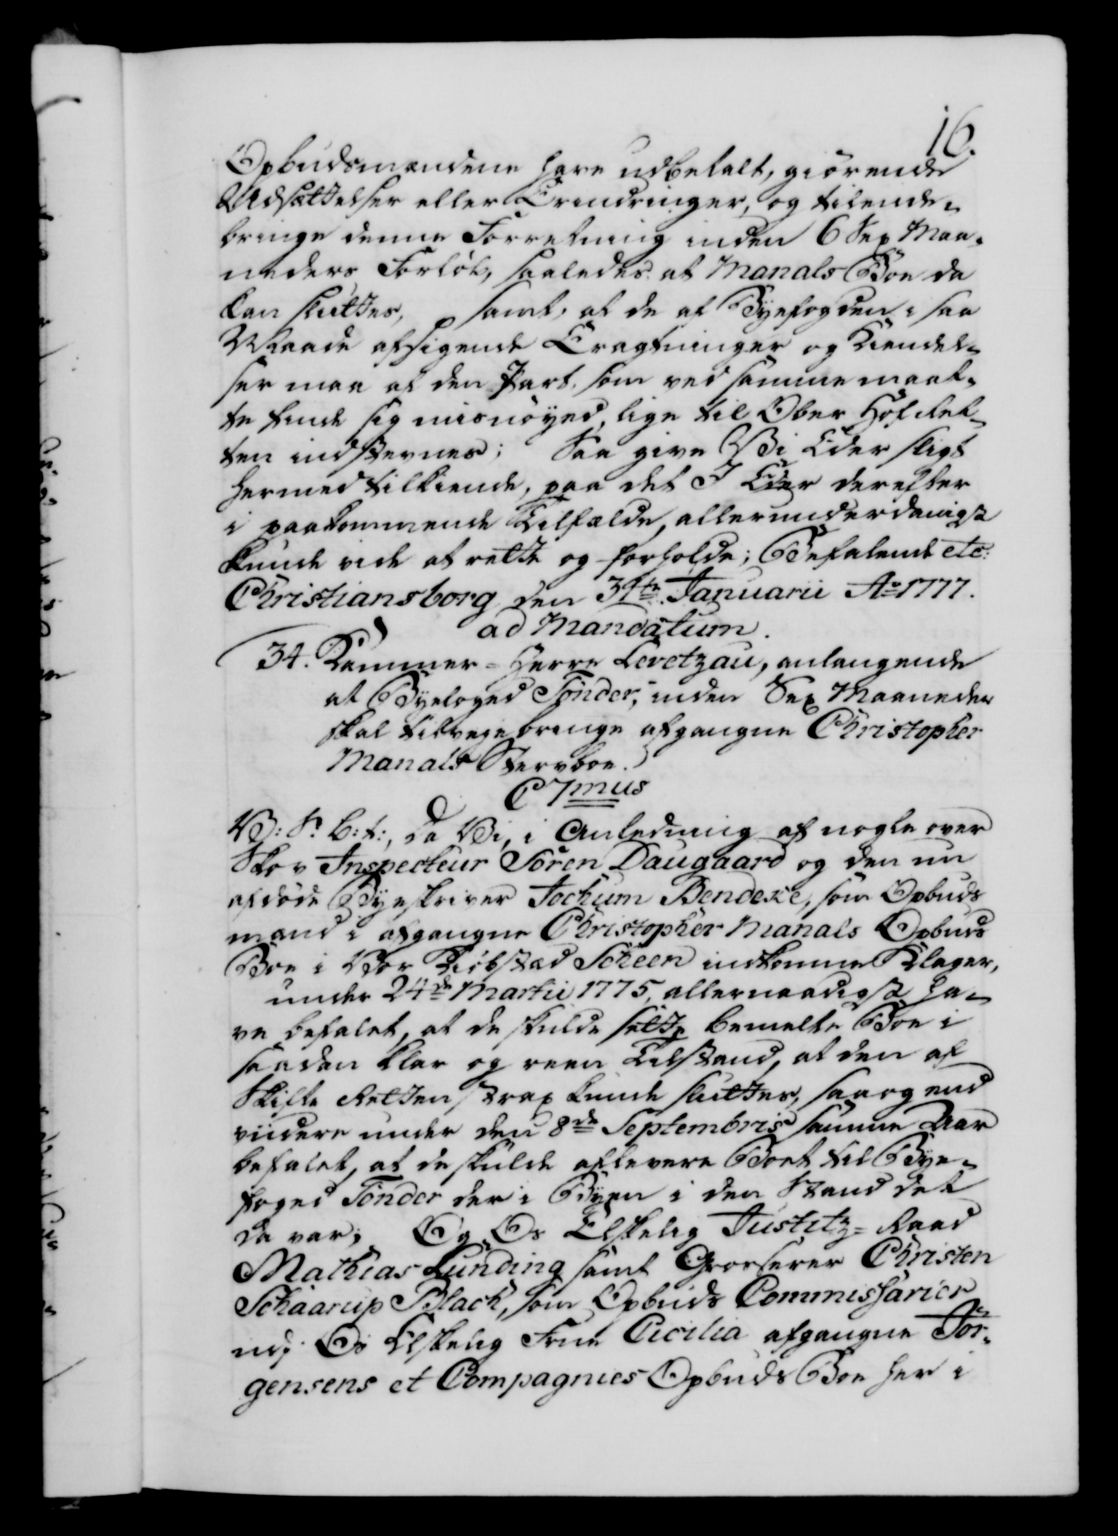 16.
Opbudsmændene have udbetalt, giørende
Udsættelser eller Erindringer, og tilende-
bringe denne Forretning inden 6 Sex Maa-
neders Forløb, saaledes at Manals Boe da
kan sluttes, samt, at de af Byefogden i saa
Maade afsigende Eragtninger og Kiendel-
ser maa af den Part, som ved samme maat-
te finde sig misnøyed, lige til Ober Hof Ret-
ten indstevnes; Saa give Vi Eder sligt
hermed tilkiende, paa det I Eder derefter
i paakommende Tilfælde, allerunderdanigst
kunde vide at rette og forholde; Befalende etc:
Christiansborg den 31te Januarii Ao 1777.
ad Mandatum.
34. Kammer-Herre Levetzau, anlangende
at Byefoged Tønder, inden Sex Maaneder
skal tilveyebringe afgangne Christopher
Manals Stervboe.
C7mus
V: S. b: t:, Da Vi, i Anledning af nogle over
Skov Inspecteur Søren Daugaard og den nu
afdøde Byeskriver Jochum Bendeke, som Opbuds
mænd i afgangne Christopher Manals Opbuds
Boe i Vor Kiøbstad Scheen indkomne Klager,
under 24de Martii 1775, allernaadigst ha-
ve befalet, at de skulde sætte bemelte Boe i
saadan klar og reen Tilstand, at den af
Skifte Retten strax kunde sluttes, saa og end
viidere under den 8de Septembris samme Aar
befalet, at de skulde aflevere Boet til Bye-
foged Tønder der i Byen i den Stand det
da var; Og Os Elskelig Justitz-Raad
Mathias Lunding samt Grosserer Christen
Schaarup Black, som Opbuds Commissarier
udj Os Elskelig Frue Cicilia afgangne Jør-
gensens et Compagnies Opbuds Boe her i